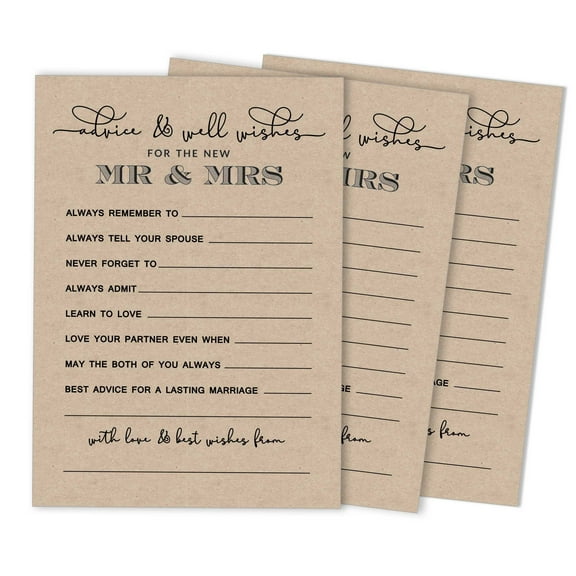 advice & well wishes
FOR THE NEW
MR & MRS
ALWAYS REMEMBER TO
ALWAYS TELL YOUR SPOUSE
NEVER FORGET TO
ALWAYS ADMIT
LEARN TO LOVE
LOVE YOUR PARTNER EVEN WHEN
MAY THE BOTH OF YOU ALWAYS
BEST ADVICE FOR A LASTING MARRIAGE
with love & best wishes from
wishes
MRS
from
wishes
RS
AGE
from